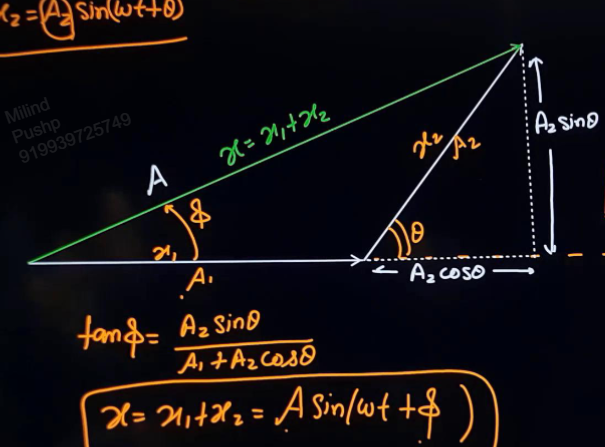 x₂ = A₂ sin(ωt+θ)
Milind
Pushp
919939725749
x = x₁ + x₂
A
ϕ
x₂ A₂
A₂ sinθ
θ
x₁
A₁
A₂ cosθ
tanϕ = A₂ sinθ / A₁ + A₂ cosθ
x = x₁ + x₂ = A sin(ωt + ϕ)